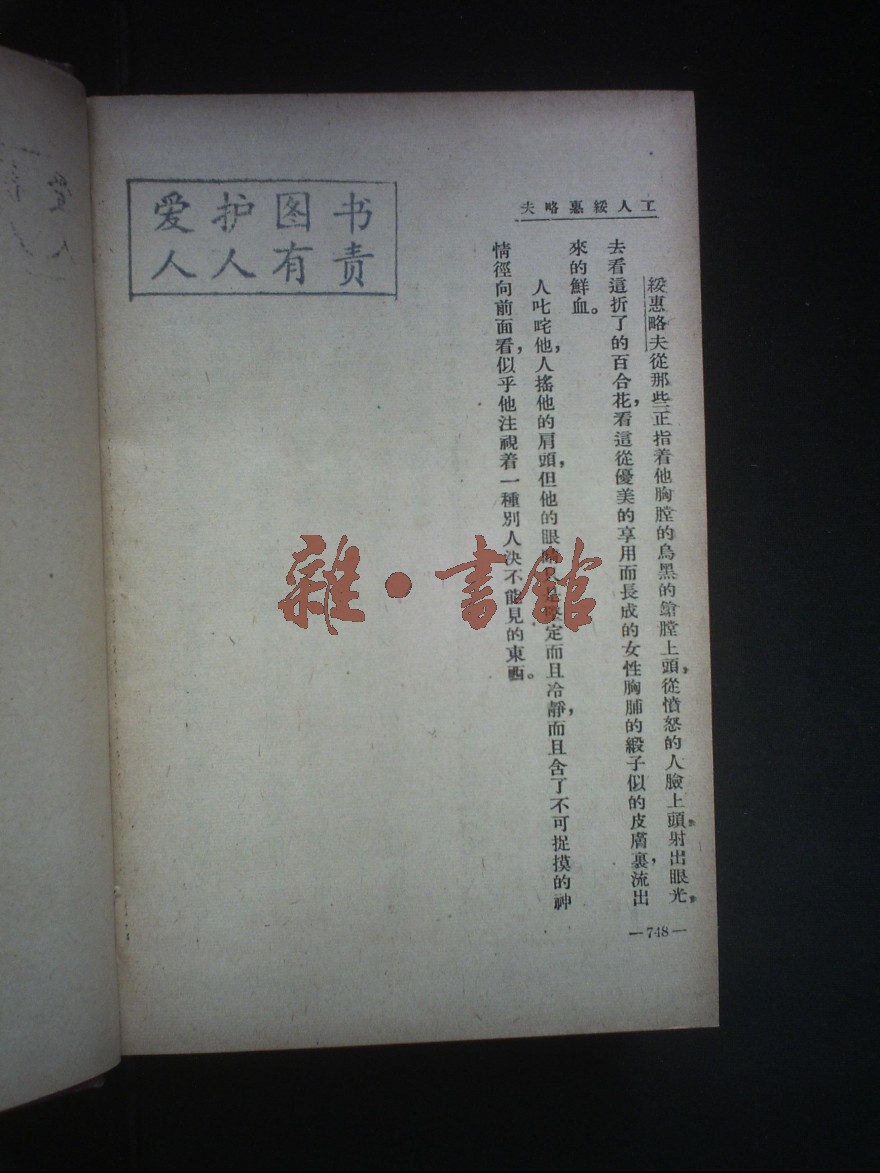 工人綏惠略夫
綏惠略夫從那些正指着他胸膛的烏黑的鎗膛上頭，從憤怒的人臉上頭，射出眼光，
去看這折了的百合花，看這從優美的享用而長成的女性胸脯的緞子似的皮膚裏，流出
來的鮮血。
人叱咤他，人搖他的肩頭，但他的眼睛定而且冷靜，而且含了不可捉摸的神
情徑向前面看，似乎他注視着一種別人決不能見的東西。
—748—
爱护图书
人人有责
雜·書館